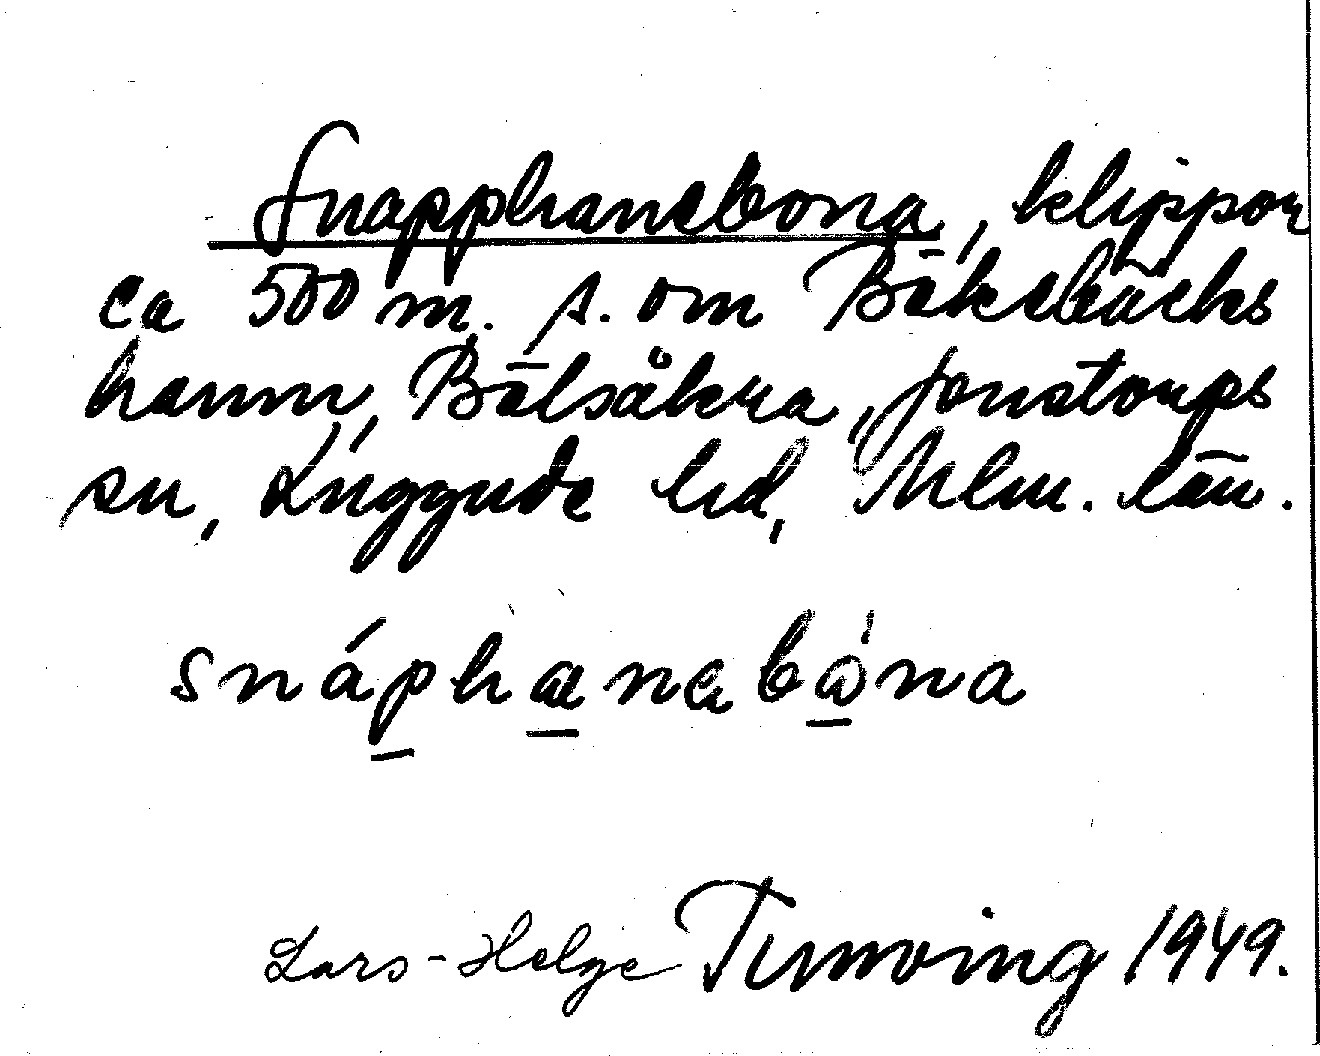 Snapphanebona, klippor
ca 500 m. s. om Bäkebäcks
hamn, Bölsåkra, Jonstorps
sn, Luggude hd, Mlm. län.
snáphanabona
Lars-Helge Tunving 1949.